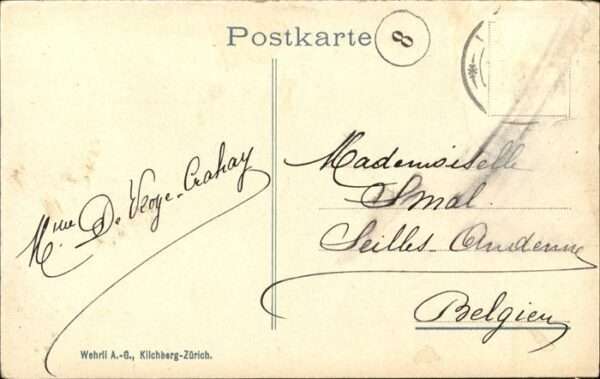 Postkarte
8
Mme D. Kroye-Crahay
Mademoiselle
Smal.
Seilles-Andenne
Belgien
Wehrli A.-G., Kilchberg-Zürich.